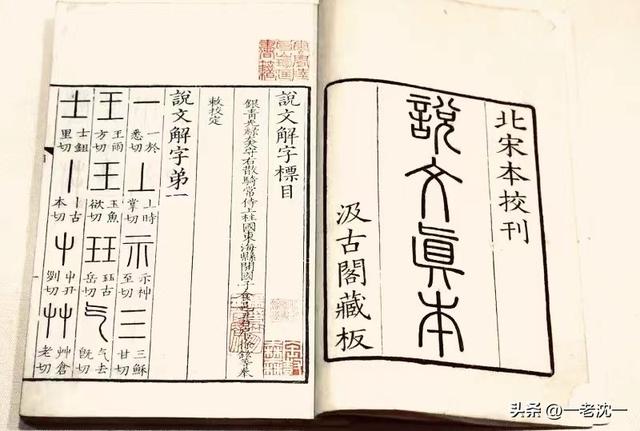 北宋本校刊
說文眞本
汲古閣藏板
說文解字標目
銀青光祿大夫守右散騎常侍上柱國東海縣開國子食邑五百戶徐鉉等奉
敕校定
說文解字第一
一 一於悉切 上 上時掌切 示 示神至切 三 三穌甘切
王 王雨方切 玉 玉魚欲切 玨 玨古岳切 气 气去旣切
士 士鉏里切 丨 丨古本切 屮 屮丑列切 艸 艸倉老切
头条 @一老沈一